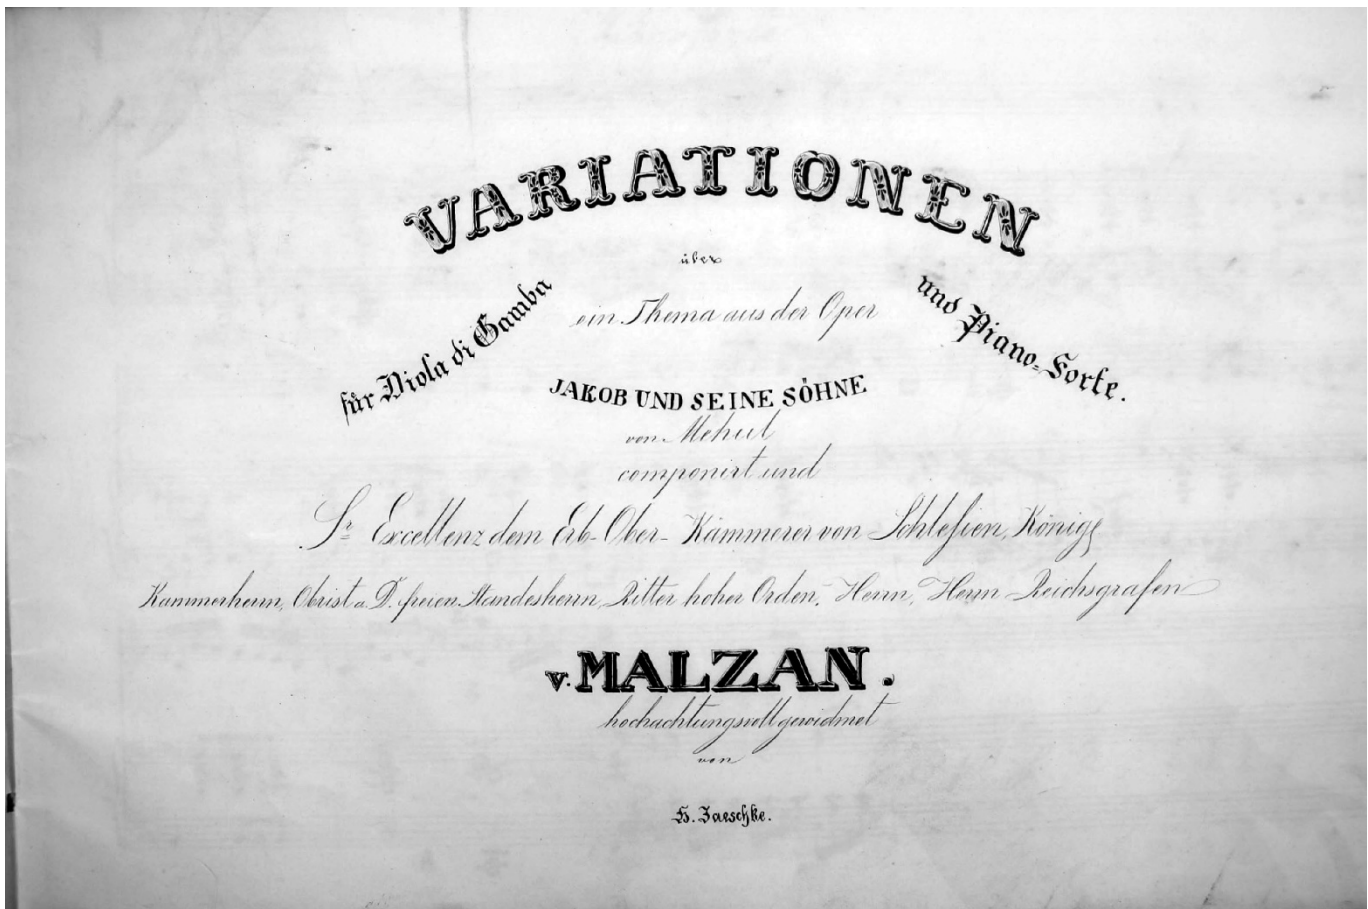 VARIATIONEN
über
für Viola di Gamba
ein Thema aus der Oper
und Piano-Forte.
JAKOB UND SEINE SÖHNE
von Mehul
componirt und
Sr Excellenz dem Erb-Ober-Kämmerer von Schlesien, Königl
Kammerherrn, Obrist a. D. freien Standesherrn, Ritter hoher Orden, Herrn, Herrn Reichsgrafen
v. MALZAN.
hochachtungsvoll gewidmet
von
H. Jaeschke.